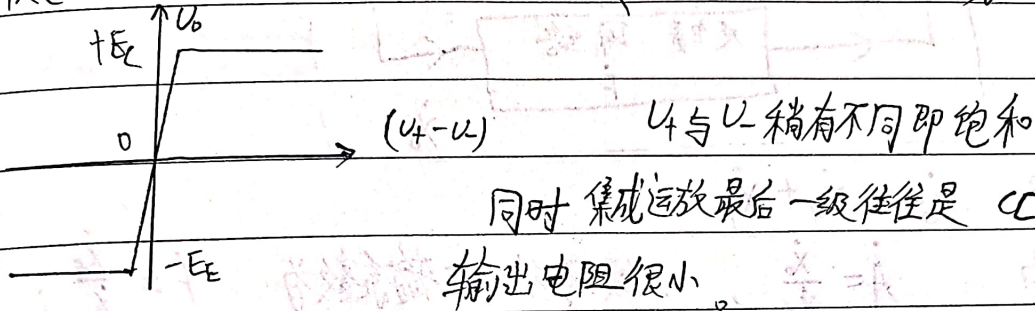 U₀
+E_C
0
(U₊-U₋)
U₊与U₋稍有不同即饱和
同时 集成运放最后一级往往是 CC
-E_E
输出电阻很小。